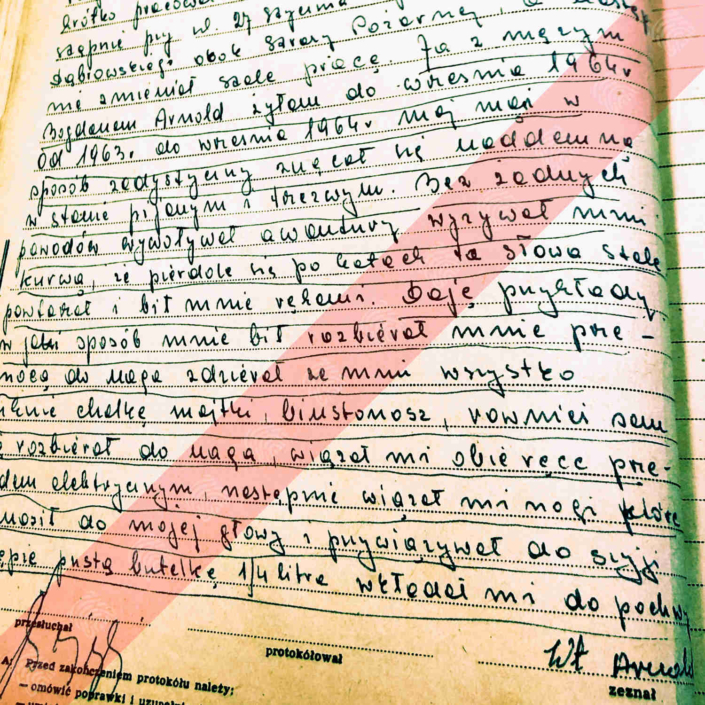 krótko pracował
sierpnie przy ul. 27 stycznia
Dąbrowskiego obok Straży Pożarnej, a
nie zmieniał stale pracę. Ja z mężem
Bogdanem Arnold żyłam do września 1964r
Od 1963r. do września 1964r mój mąż w
sposób sadystyczny znęcał się naddemną
w stanie pijanym i trzeźwym. Bez żadnych
powodów wywoływał awantury wyzywał mnie
kurwą, że pierdole się po kątach te słowa stale
powtarzał i bił mnie rękami. Daję przykłady
w jaki sposób mnie bił rozbierał mnie prze-
mocą do naga zdzierał ze mnie wszystko
halkę majtki, biustonosz, rownież sam
rozbierał do naga, wiązał mi obie ręce prze-
dem elektrycznym, następnie wiązał mi nogi które
do mojej głowy i przywiązywał do szyji
pustą butelkę 1/4 litra wkładał mi do pochwy
przesłuchał
protokółował
Wł Arnold
zeznał
A: Przed zakończeniem protokółu należy:
— omówić poprawki i